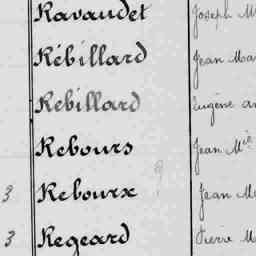 Ravaudet Joseph M
Rébillard Jean Ma
Rébillard Eugène
Rebours Jean Mie
3 Rebourx Jean M
3 Regeard Pierre M